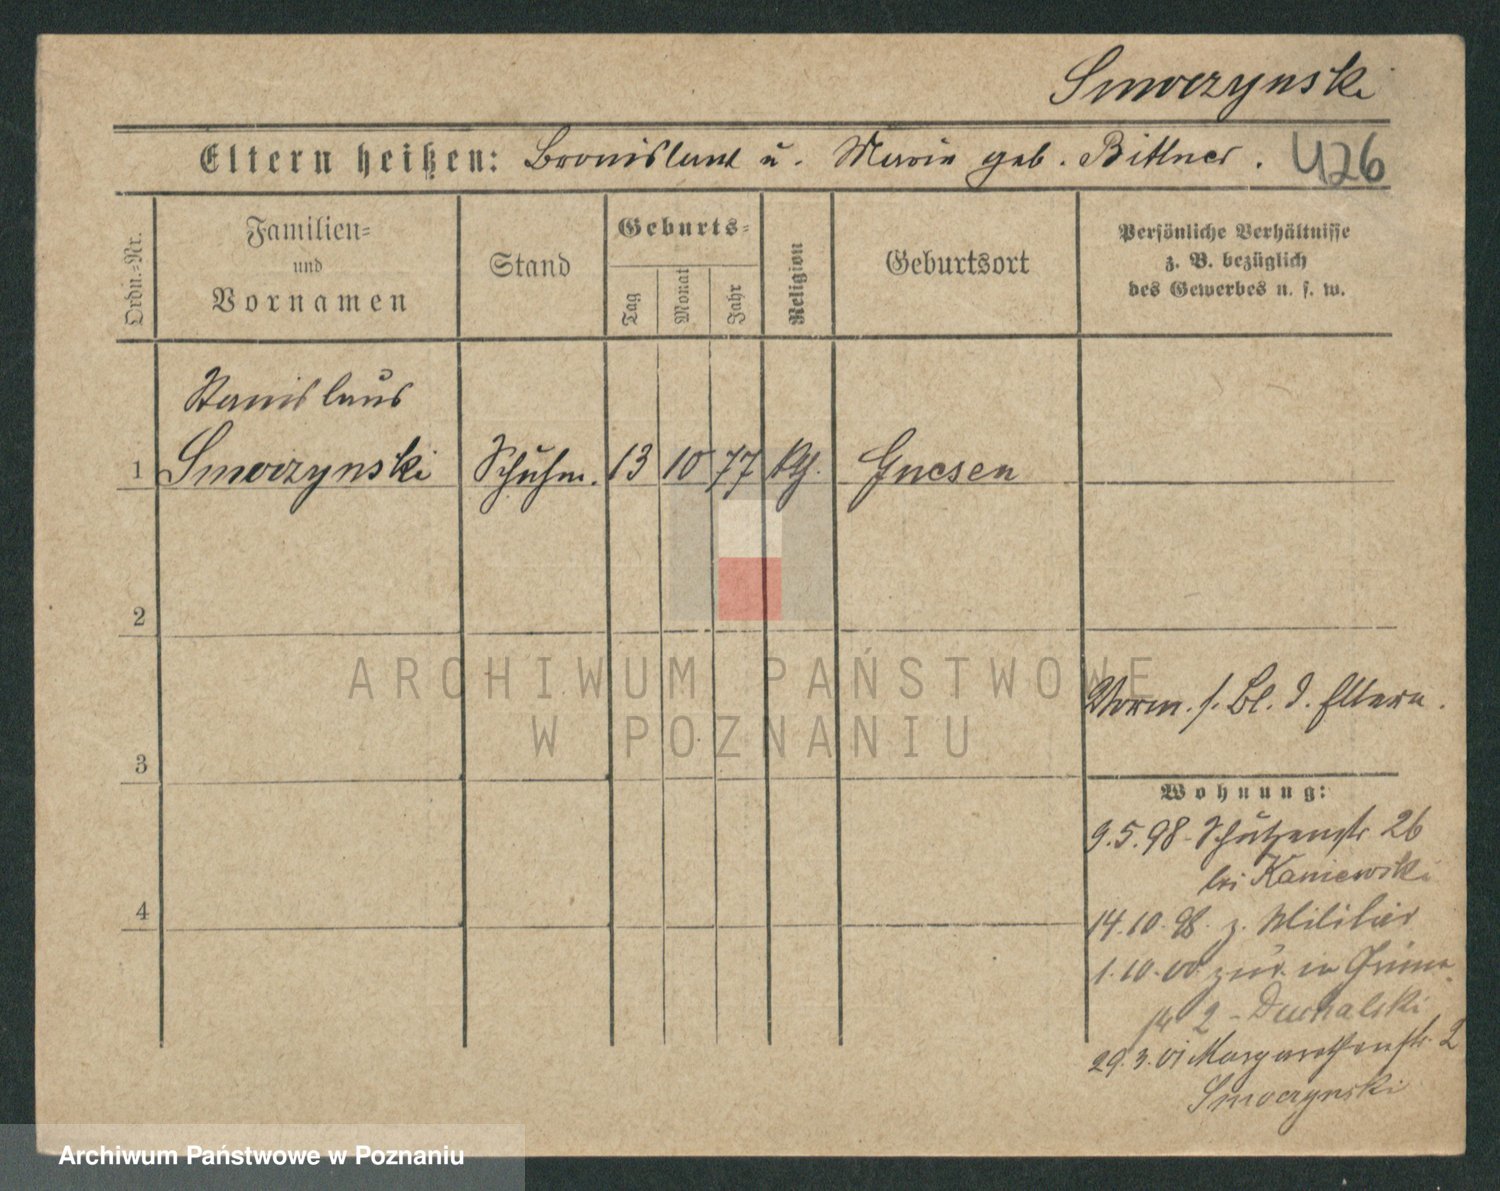 Smoczynski
Eltern heißen: Bronislaus u. Maria geb. Bittner. 426
Ordn.-Nr.
Familien-
und
Vornamen
Stand
Geburts-
Tag
Monat
Jahr
Religion
Geburtsort
Persönliche Verhältnisse
z. B. bezüglich
des Gewerbes u. s. w.
Stanislaus
1 Smoczynski Schuhm. 13 10 77 kth. Gnesen
2
ARCHIWUM PAŃSTWOWE
W POZNANIU
Vorm. s. Bl. d. Eltern.
3
Wohnung:
9.5.98. Schützenstr. 26
bei Kaniewski
4
14.10.98. z. Militär
1.10.00 zur. in
2 -
29.3.01 Margarethenstr. 2
Smoczynski
Archiwum Państwowe w Poznaniu